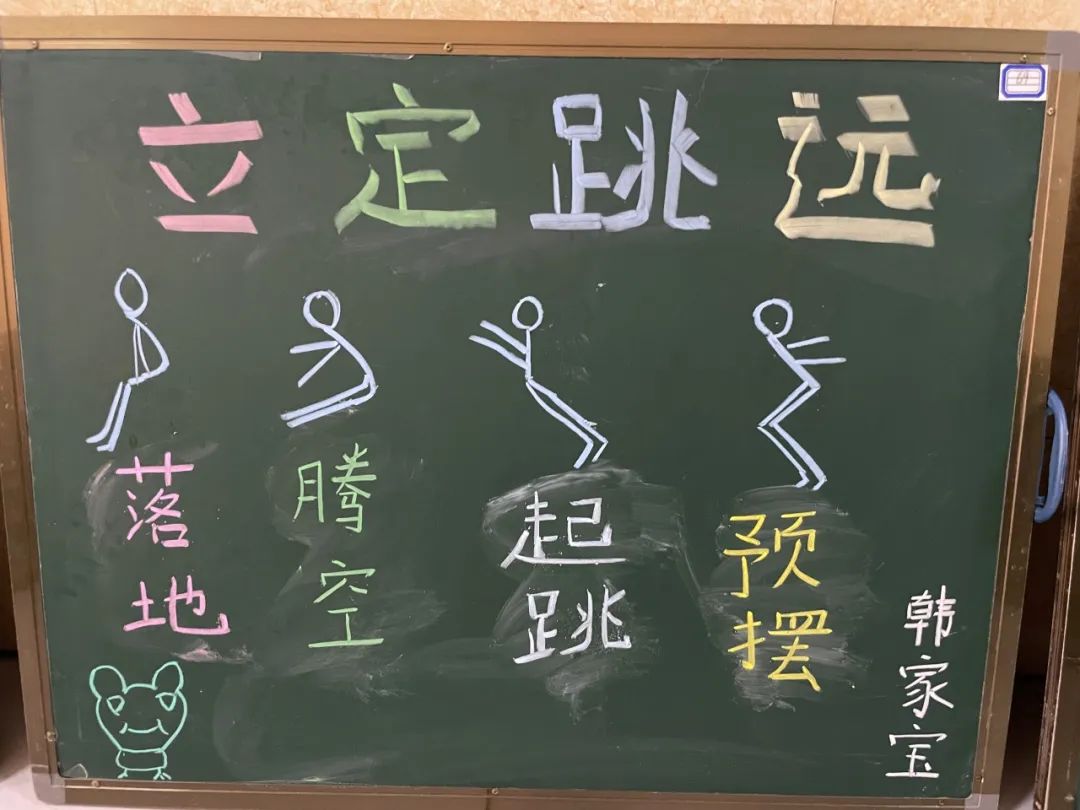 立定跳远
落地
腾空
起跳
预摆
韩家宝